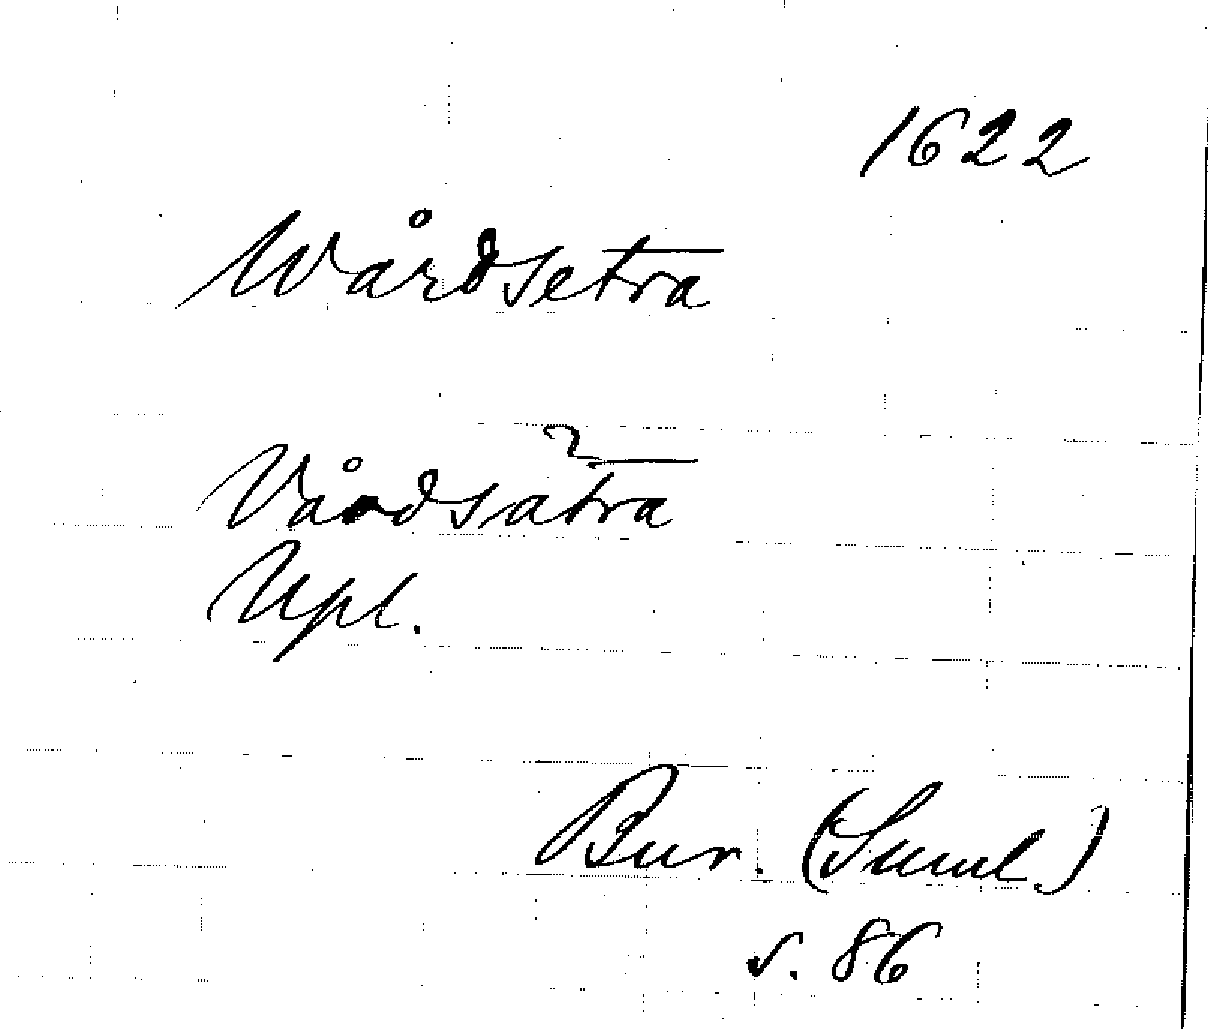 1622
Wårdsetra
Vårdsätra
Upl.
Bur. (Suml.)
s. 86